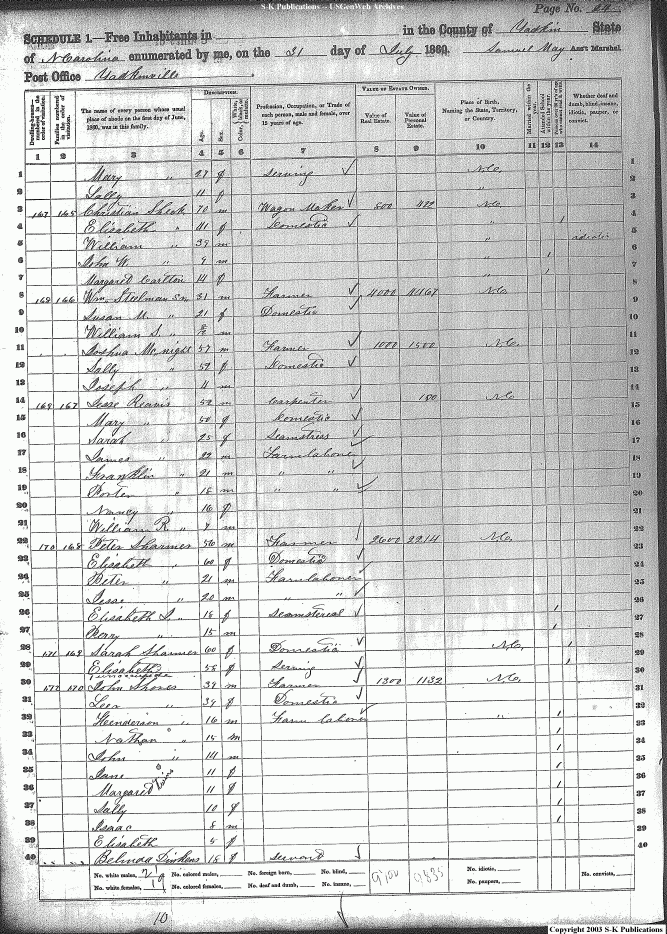 S-K Publications -- USGenWeb Archives
Page No.
SCHEDULE 1.—Free Inhabitants in in the County of Yadkin State
of N Carolina enumerated by me, on the 31 day of July 1860. Samuel May Ass't Marshal.
Post Office Yadkinville
Dwelling-houses—numbered in the order of visitation.
Families numbered in the order of visitation.
The name of every person whose usual place of abode on the first day of June, 1860, was in this family.
DESCRIPTION.
Age.
Sex.
Color, White, black, or mulatto.
Profession, Occupation, or Trade of each person, male and female, over 15 years of age.
VALUE OF ESTATE OWNED.
Value of Real Estate.
Value of Personal Estate.
Place of Birth, Naming the State, Territory, or Country.
Married within the year.
Attended School within the year.
Whether deaf and dumb, blind, insane, idiotic, pauper, or convict.
1 2 3 4 5 6 7 8 9 10 11 12 13 14
1 Mary " 27 f Serving N.C. 1
2 Sally 11 f " 2
3 167 165 Christian Sheek 70 m Wagon Maker 500 N.C. 3
4 Elisabeth " 41 f Domestic 4
5 William " 39 m " 5
6 John W. " 9 m " 6
7 Margaret Carlton 14 f " 7
8 168 166 Wm. Steelman 31 m Farmer 4000 N.C. 8
9 Susan M. " 21 f Domestic 9
10 William S. " m
11 Joshua Mc night 57 m Farmer 1000 1500 N.C. 11
12 Sally " 57 f Domestic 12
13 Joseph " 4 m 13
14 169 167 Jesse Reavis 52 m Carpenter 150 N.C 14
15 Mary " 50 f Domestic 15
16 Sarah " 25 f Seamstress 16
17 James " 22 m Farmlaborer 17
18 Franklin " 21 m " " 18
19 Porter " 18 m " " 19
20 Nancy " 16 f 20
21 William R. " 7 m
22 170 168 Peter Sharmer 56 m Farmer 2600 2214 N.C. 22
23 Elisabeth " 60 f Domestic 23
24 Peter " 21 m Farmlaborer 24
25 Jesse " 20 m " " 25
26 Elisabeth J. " 18 f 26
27 Perry " 15 m 27
28 171 169 Sarah Sharmer 60 f Domestic N.C. 28
29 Elisabeth 58 f Serving 29
30 172 170 John Shores 39 m Farmer 1300 1132 N.C. 30
31 39 f Domestic 31
32 Henderson " 16 m Farm laborer " 32
33 Nathan " 15 m 33
34 John " 14 m 34
35 Jane " 11 f 35
36 Margaret Twins 11 f 36
37 Sally 10 f 37
38 Isaac 8 m 38
39 Elisabeth 5 f 39
40 Belinda Dinkens 18 f servant 40
No. white males, 21 No. colored males, No. foreign born, No. blind, No. idiotic, No. convicts,
No. white females, 19 No. colored females, No. deaf and dumb, No. insane, No. paupers,
10
Copyright 2003 S-K Publications